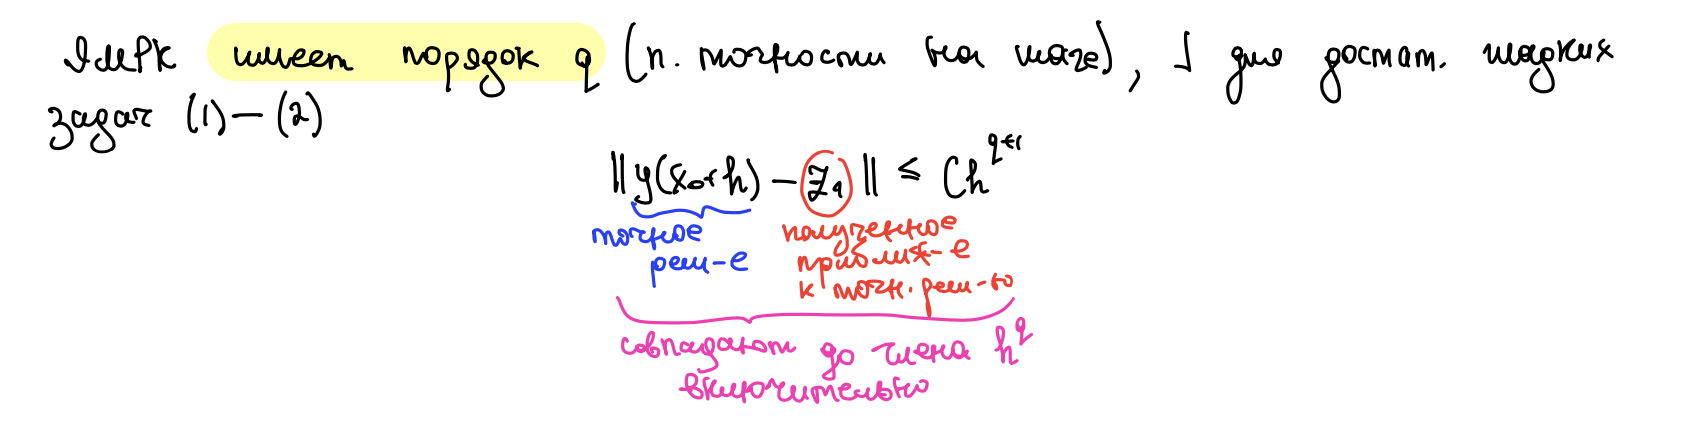 ЯМРК имеет порядок q (п. точности на шаге), если для достат. гладких
задач (1)–(2)
‖y(x₀+h) – y₁‖ ≤ Ch^{q+1}
точное
реш-е
полученное
приближ-е
к точн. реш-ю
совпадают до члена h^q
включительно